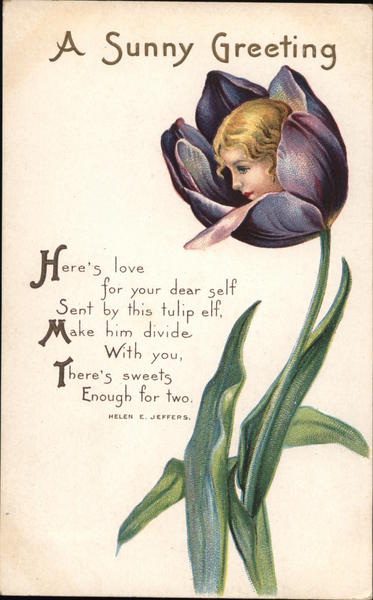 A Sunny Greeting
Here's love
for your dear self
Sent by this tulip elf,
Make him divide
With you,
There's sweets
Enough for two.
HELEN E. JEFFERS.